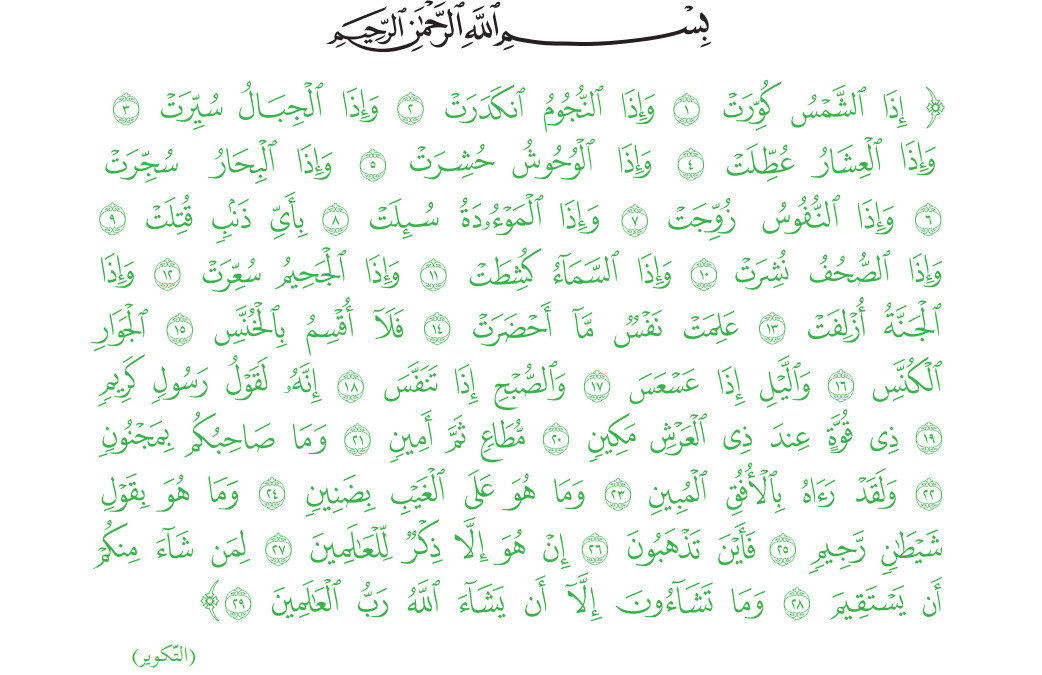 بِسْمِ ٱللَّهِ ٱلرَّحْمَٰنِ ٱلرَّحِيمِ
﴿ إِذَا ٱلشَّمْسُ كُوِّرَتْ ١ وَإِذَا ٱلنُّجُومُ ٱنكَدَرَتْ ٢ وَإِذَا ٱلْجِبَالُ سُيِّرَتْ ٣
وَإِذَا ٱلْعِشَارُ عُطِّلَتْ ٤ وَإِذَا ٱلْوُحُوشُ حُشِرَتْ ٥ وَإِذَا ٱلْبِحَارُ سُجِّرَتْ
٦ وَإِذَا ٱلنُّفُوسُ زُوِّجَتْ ٧ وَإِذَا ٱلْمَوْءُۥدَةُ سُئِلَتْ ٨ بِأَيِّ ذَنۢبٍ قُتِلَتْ ٩
وَإِذَا ٱلصُّحُفُ نُشِرَتْ ١٠ وَإِذَا ٱلسَّمَآءُ كُشِطَتْ ١١ وَإِذَا ٱلْجَحِيمُ سُعِّرَتْ ١٢ وَإِذَا
ٱلْجَنَّةُ أُزْلِفَتْ ١٣ عَلِمَتْ نَفْسٌ مَّآ أَحْضَرَتْ ١٤ فَلَآ أُقْسِمُ بِٱلْخُنَّسِ ١٥ ٱلْجَوَارِ
ٱلْكُنَّسِ ١٦ وَٱلَّيْلِ إِذَا عَسْعَسَ ١٧ وَٱلصُّبْحِ إِذَا تَنَفَّسَ ١٨ إِنَّهُۥ لَقَوْلُ رَسُولٍ كَرِيمٍ
١٩ ذِى قُوَّةٍ عِندَ ذِى ٱلْعَرْشِ مَكِينٍ ٢٠ مُّطَاعٍ ثَمَّ أَمِينٍ ٢١ وَمَا صَاحِبُكُم بِمَجْنُونٍ
٢٢ وَلَقَدْ رَءَاهُ بِٱلْأُفُقِ ٱلْمُبِينِ ٢٣ وَمَا هُوَ عَلَى ٱلْغَيْبِ بِضَنِينٍ ٢٤ وَمَا هُوَ بِقَوْلِ
شَيْطَانٍ رَّجِيمٍ ٢٥ فَأَيْنَ تَذْهَبُونَ ٢٦ إِنْ هُوَ إِلَّا ذِكْرٌ لِّلْعَالَمِينَ ٢٧ لِمَن شَآءَ مِنكُمْ
أَن يَسْتَقِيمَ ٢٨ وَمَا تَشَآءُونَ إِلَّآ أَن يَشَآءَ ٱللَّهُ رَبُّ ٱلْعَالَمِينَ ٢٩ ﴾
(التكوير)